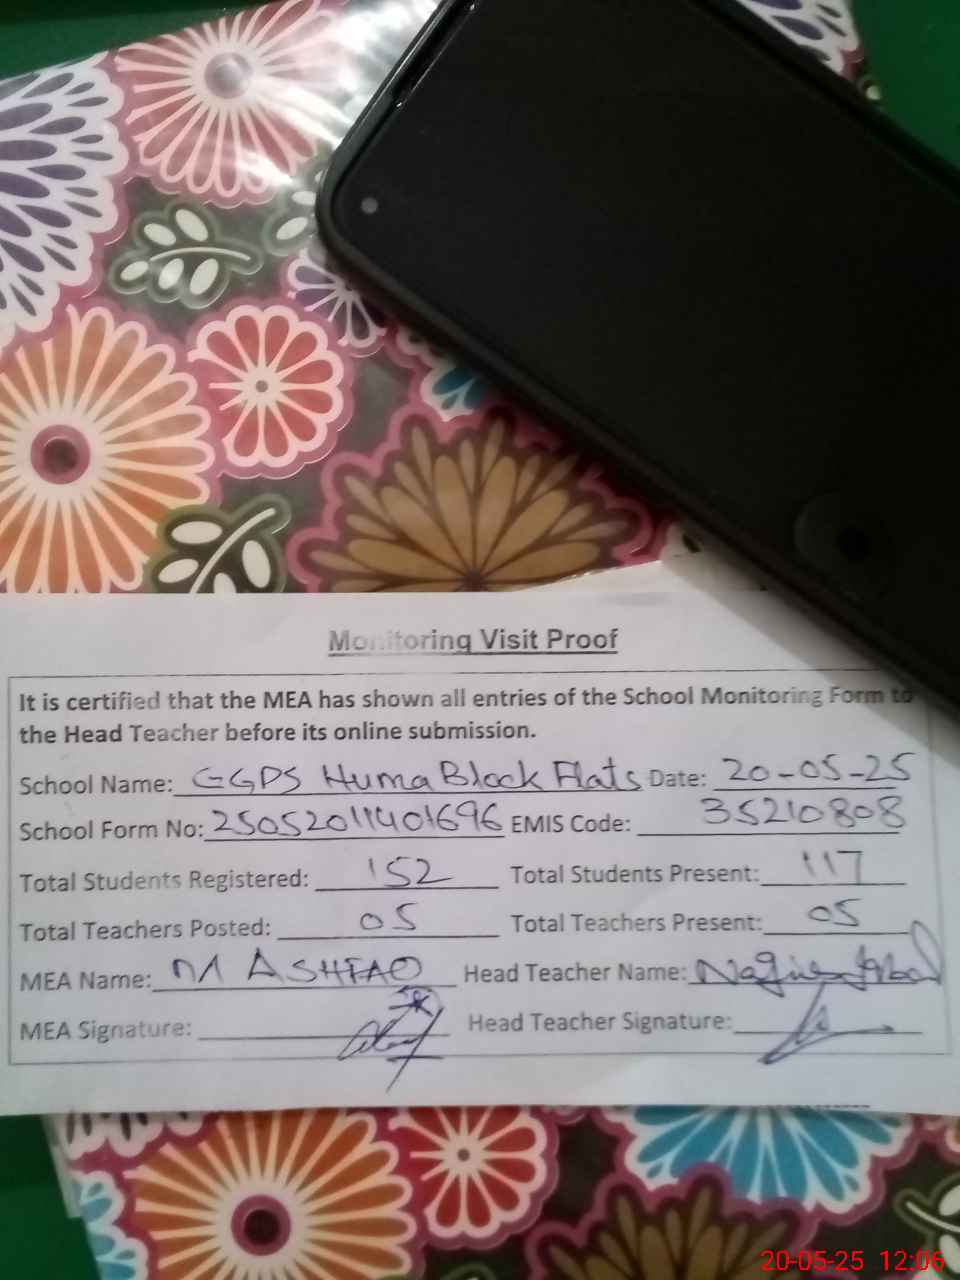 Monitoring Visit Proof
It is certified that the MEA has shown all entries of the School Monitoring Form to
the Head Teacher before its online submission.
School Name: GGPS Huma Block Flats Date: 20-05-25
School Form No: 25052011401696 EMIS Code: 35210808
Total Students Registered: 152 Total Students Present: 117
Total Teachers Posted: 05 Total Teachers Present: 05
MEA Name: M ASHFAQ Head Teacher Name:
MEA Signature: Head Teacher Signature:
20-05-25 12:06